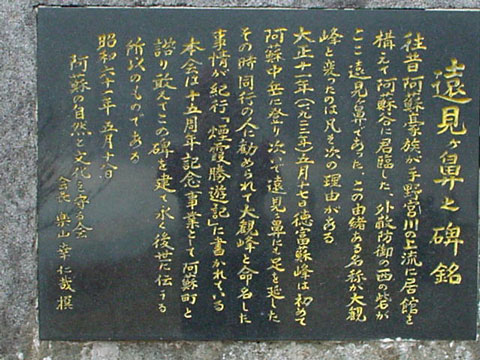 遠見ヶ鼻と碑銘
往昔阿蘇豪族が手野宮川上流に居館を
構えて阿蘇谷に君臨した、外敵防御の西の砦が
ここ遠見ヶ鼻であった、この由緒ある名称が大観
峰と変ったのは凡そ次の理由がある
大正十一年(一九二三)五月十七日徳富蘇峰は初めて
阿蘇中岳に登り次いで遠見ヶ鼻に足を延した
その時同行の人に勧められて大観峰と命名した
事情が紀行「煙霞勝遊記」に書かれている
本会は十五周年記念事業として阿蘇町と
諮り敢えてこの碑を建て永く後世に伝うる
所以のものである
昭和六十一年五月十八日
阿蘇の自然と文化を守る会
会長 楽山幸仁哉 撰